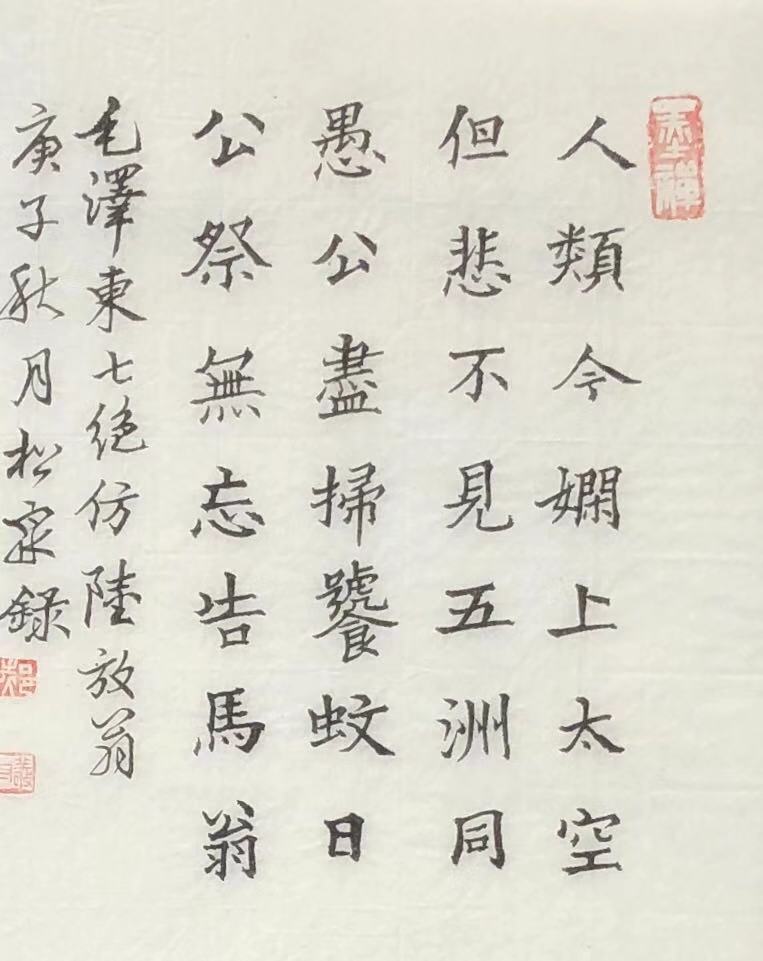 人類今嫻上太空
但悲不見五洲同
愚公盡掃饕蚊日
公祭無忘告馬翁
毛澤東七絕仿陸放翁
庚子秋月松泉錄